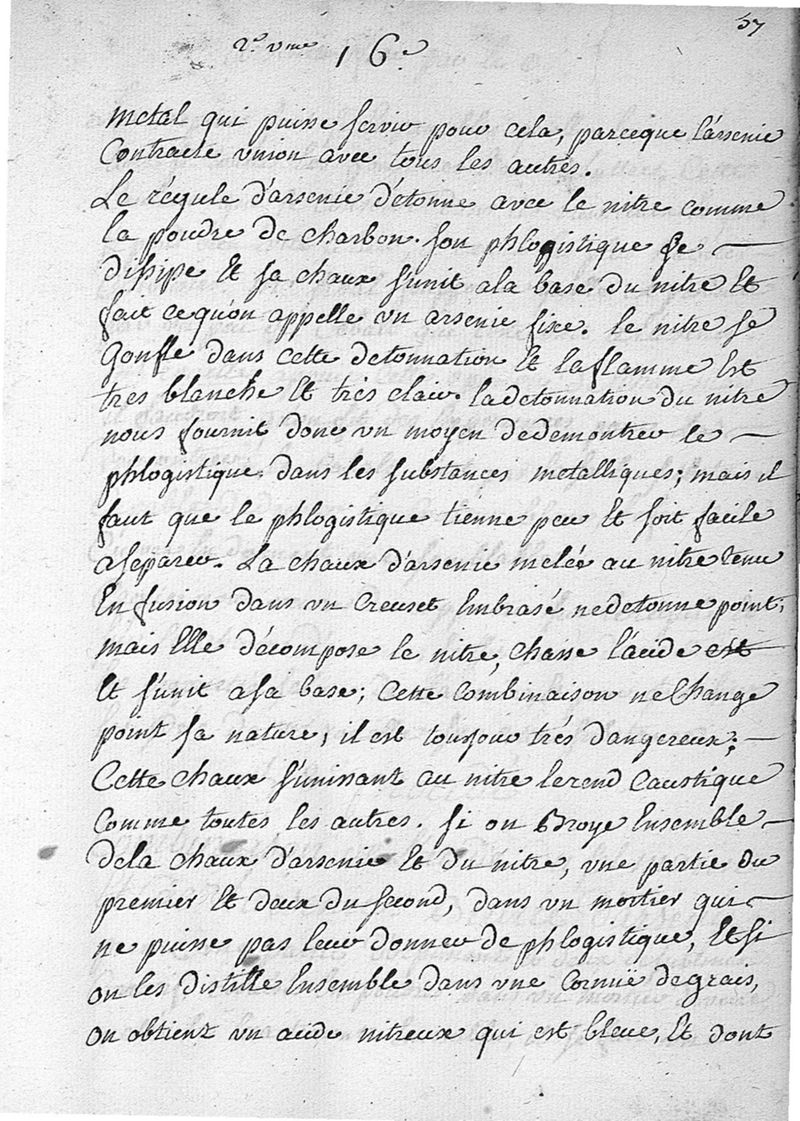 57
2.e vme 16.e
metal qui puisse servir pour cela, parceque l'arsenic
Contracte vnion avec tous les autres.
Le régule d'arsenic d'étonne avec le nitre comme
la poudre de charbon. son phlogistique se —
dissipe Et sa chaux s'unit ala base du nitre Et
fait cequ'on appelle vn arsenic fixe. le nitre se
Gonfle dans cette detonnation Et laflamme Est
tres blanche Et très clair. ladetonnation du nitre
nous fournit donc vn moyen dedemontrer le —
phlogistique dans les substances metalliques; mais il
faut que le phlogistique tienne peu Et soit facile
aseparer. La chaux d'arsenic melée au nitre tenu
En fusion dans vn Creuset Embrasé nedetonne point;
mais Elle décompose le nitre, chasse l'acide est
Et s'unit asa base; Cette Combinaison neChange
point sa nature, il est toujour très dangereux; —
Cette chaux s'unissant au nitre lerend Caustique
Comme toutes les autres. Si on Broye Ensemble —
dela chaux d'arsenic Et du nitre, vne partie du
premier Et deux du second, dans vn mortier qui —
ne puisse pas leur donner de phlogistique, Et si
on les distille Ensemble dans vne Cornuë degrais,
on obtient vn acide nitreux qui est bleue, Et dont